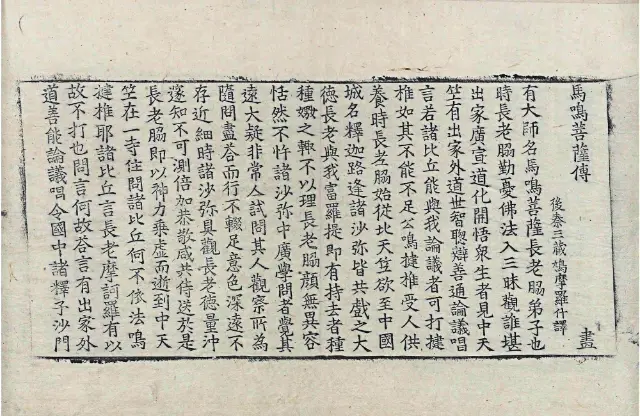 馬鳴菩薩傳
後秦三藏鳩摩羅什譯 畫
有大師名馬鳴菩薩長老脇弟子也
時長老脇勤憂佛法入三昧觀誰堪
出家廣宣道化開悟衆生者見中天
竺有出家外道世智聦辯善通論議唱
言若諸比丘能與我論議者可打揵
椎如其不能不足公鳴揵椎受人供
養時長老脇始從北天竺欲至中國
城名釋迦路逢諸沙弥皆共戲之大
徳長老與我富羅提即有持去者種
種嬈之輙不以理長老脇顔無異容
恬然不忤諸沙弥中廣學問者覺其
遠大疑非常人試問其人觀察所為
隨問盡荅而行不輟足意色深遠不
存近細時諸沙弥具觀長老德量沖
邃知不可測倍加恭敬咸共侍送於是
長老脇即以神力乘虛而逝到中天
竺在一寺住問諸比丘何不依法鳴
揵椎耶諸比丘言長老摩訶羅有以
故不打也問言何故荅言有出家外
道善能論議唱令國中諸釋子沙門